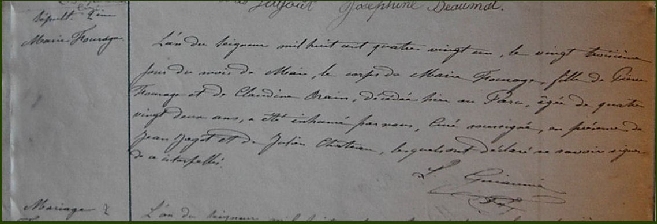 Joséphine Beaumat.
Sépult. d'un
Marie Fourage
L'an du Seigneur mil huit cent quatre vingt un, le vingt troisième
jour du mois de Mai, le corps de Marie Fourage, fille de Pierre
Fourage et de Claudine Orain, décédée hier au Parc, âgée de quatre
vingt deux ans, a été inhumé par nous, Curé soussigné, en présence de
Jean Jagot et de Julien Chateau, lesquels ont déclaré ne savoir signer
de ce interpellés.
Mariage
L'an du Seigneur mil huit cent